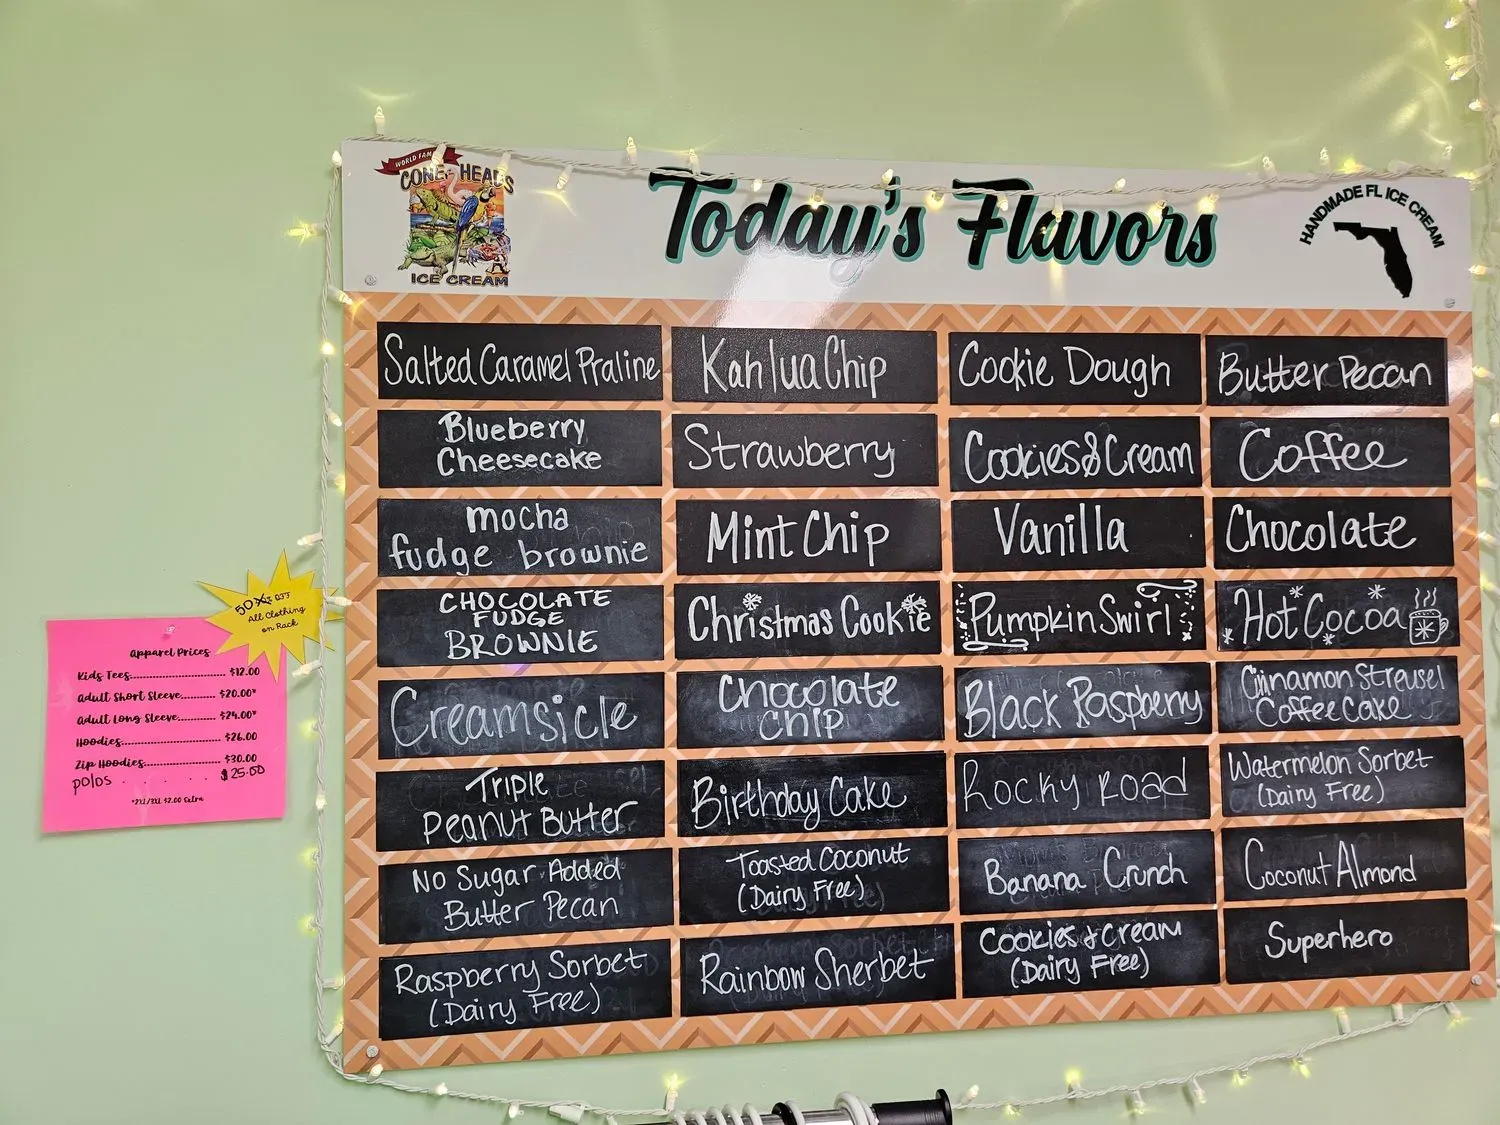 WORLD FAM
CONE HEADS
ICE CREAM
Today's Flavors
HANDMADE FL ICE CREAM
Salted Caramel Praline
Kahlua Chip
Cookie Dough
Butter Pecan
Blueberry
Cheesecake
Strawberry
Cookies & Cream
Coffee
mocha
fudge brownie
Mint Chip
Vanilla
Chocolate
CHOCOLATE
FUDGE
BROWNIE
Christmas Cookie
Pumpkin Swirl
Hot Cocoa
Creamsicle
Chocolate
Chip
Black Raspberry
Cinnamon Streusel
Coffee Cake
Triple
Peanut Butter
Birthday Cake
Rocky Road
Watermelon Sorbet
(Dairy Free)
No Sugar Added
Butter Pecan
Toasted Coconut
(Dairy Free)
Banana Crunch
Coconut Almond
Raspberry Sorbet
(Dairy Free)
Rainbow Sherbet
Cookies & Cream
(Dairy Free)
Superhero
OFF
All Clothing
on Rack
Apparel Prices
Kids Tees $12.00
Adult Short Sleeve $20.00*
Adult Long Sleeve $24.00*
Hoodies $26.00
Zip Hoodies $30.00
polos . . . . $25.00
*2XL/3XL $2.00 Extra